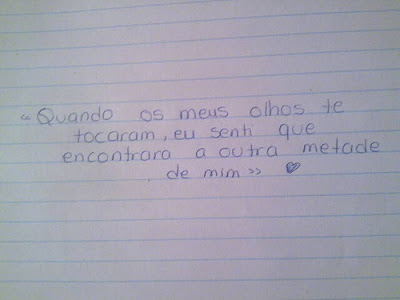 « Quando os meus olhos te
tocaram, eu senti que
encontrara a outra metade
de mim »